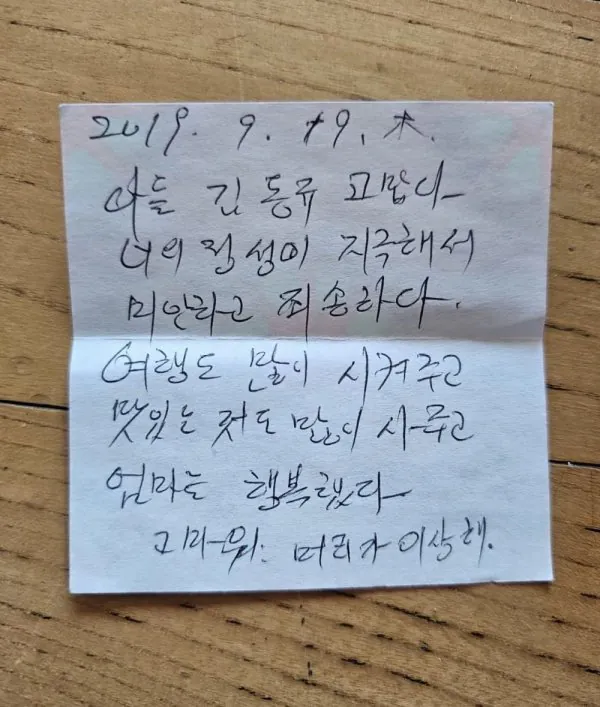 2019. 9. 19. 木.
아들 김동규 고맙다
너의 정성이 지극해서
미안하고 죄송하다.
여행도 많이 시켜주고
맛있는 것도 많이 사주고
엄마는 행복했다
고마워.